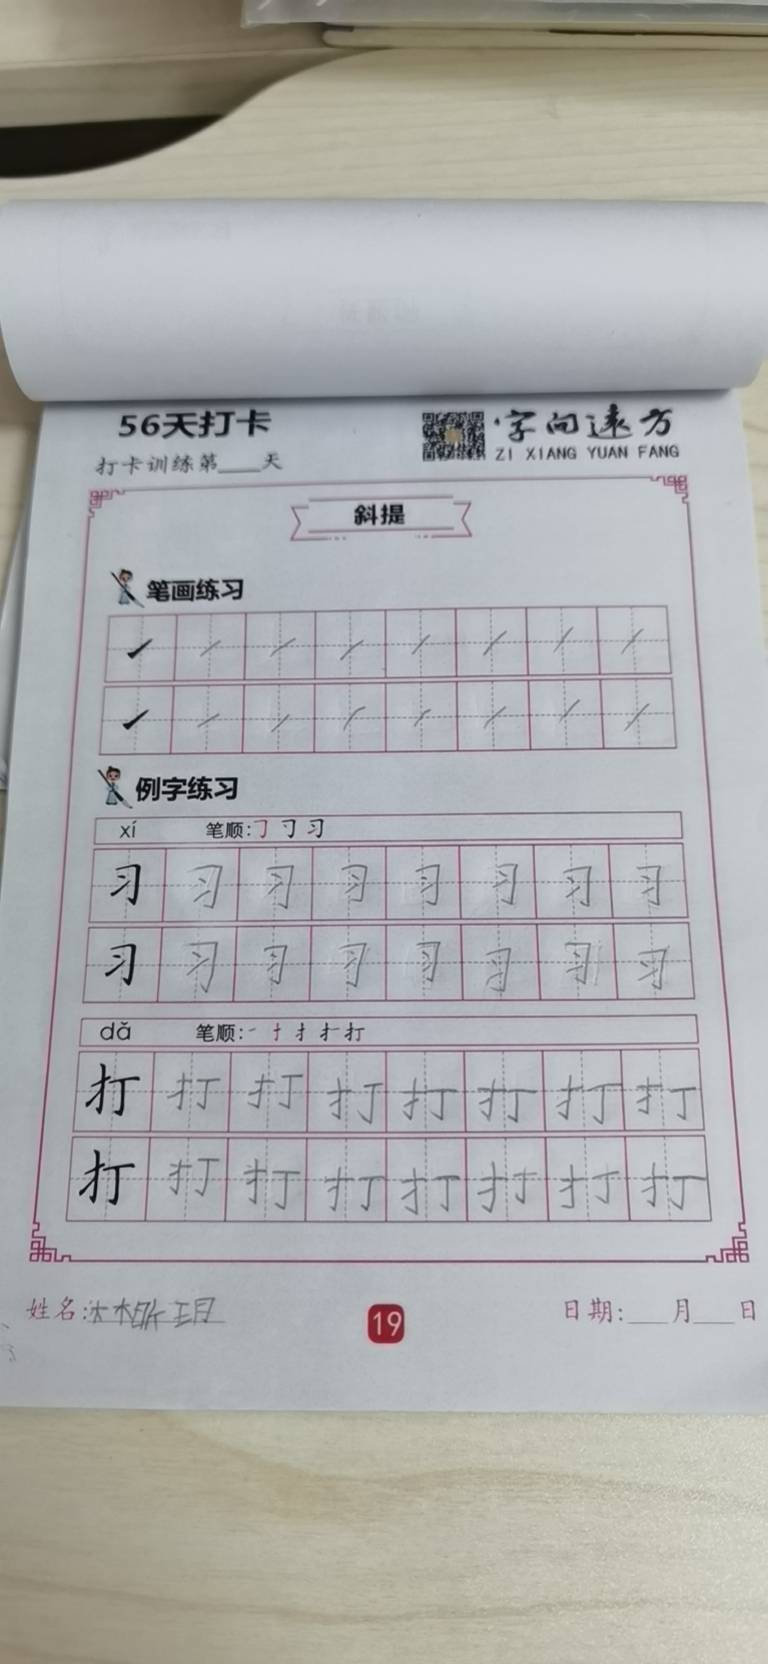 56天打卡
字向远方
打卡训练第___天
ZI XIANG YUAN FANG
斜提
笔画练习
例字练习
xí 笔顺:
习 习 习 习 习 习 习 习
习 习 习 习 习 习 习 习
dǎ 笔顺:
打 打 打 打 打 打 打 打
打 打 打 打 打 打 打 打
姓名:
19
日期:___月___日